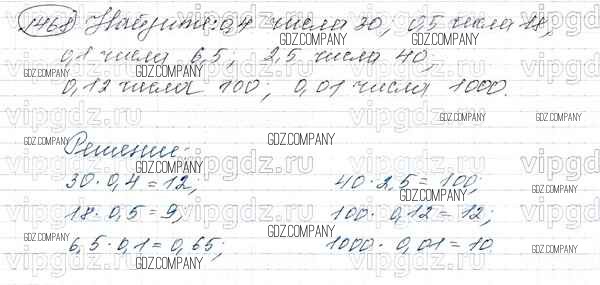 1468 Найдите: 0,4 числа 30, 0,5 числа 18,
0,1 числа 6,5; 2,5 числа 40;
0,12 числа 100; 0,01 числа 1000.
Решение:
30 · 0,4 = 12; 40 · 2,5 = 100;
18 · 0,5 = 9; 100 · 0,12 = 12;
6,5 · 0,1 = 0,65; 1000 · 0,01 = 10
GDZ.COMPANY
vipgdz.ru